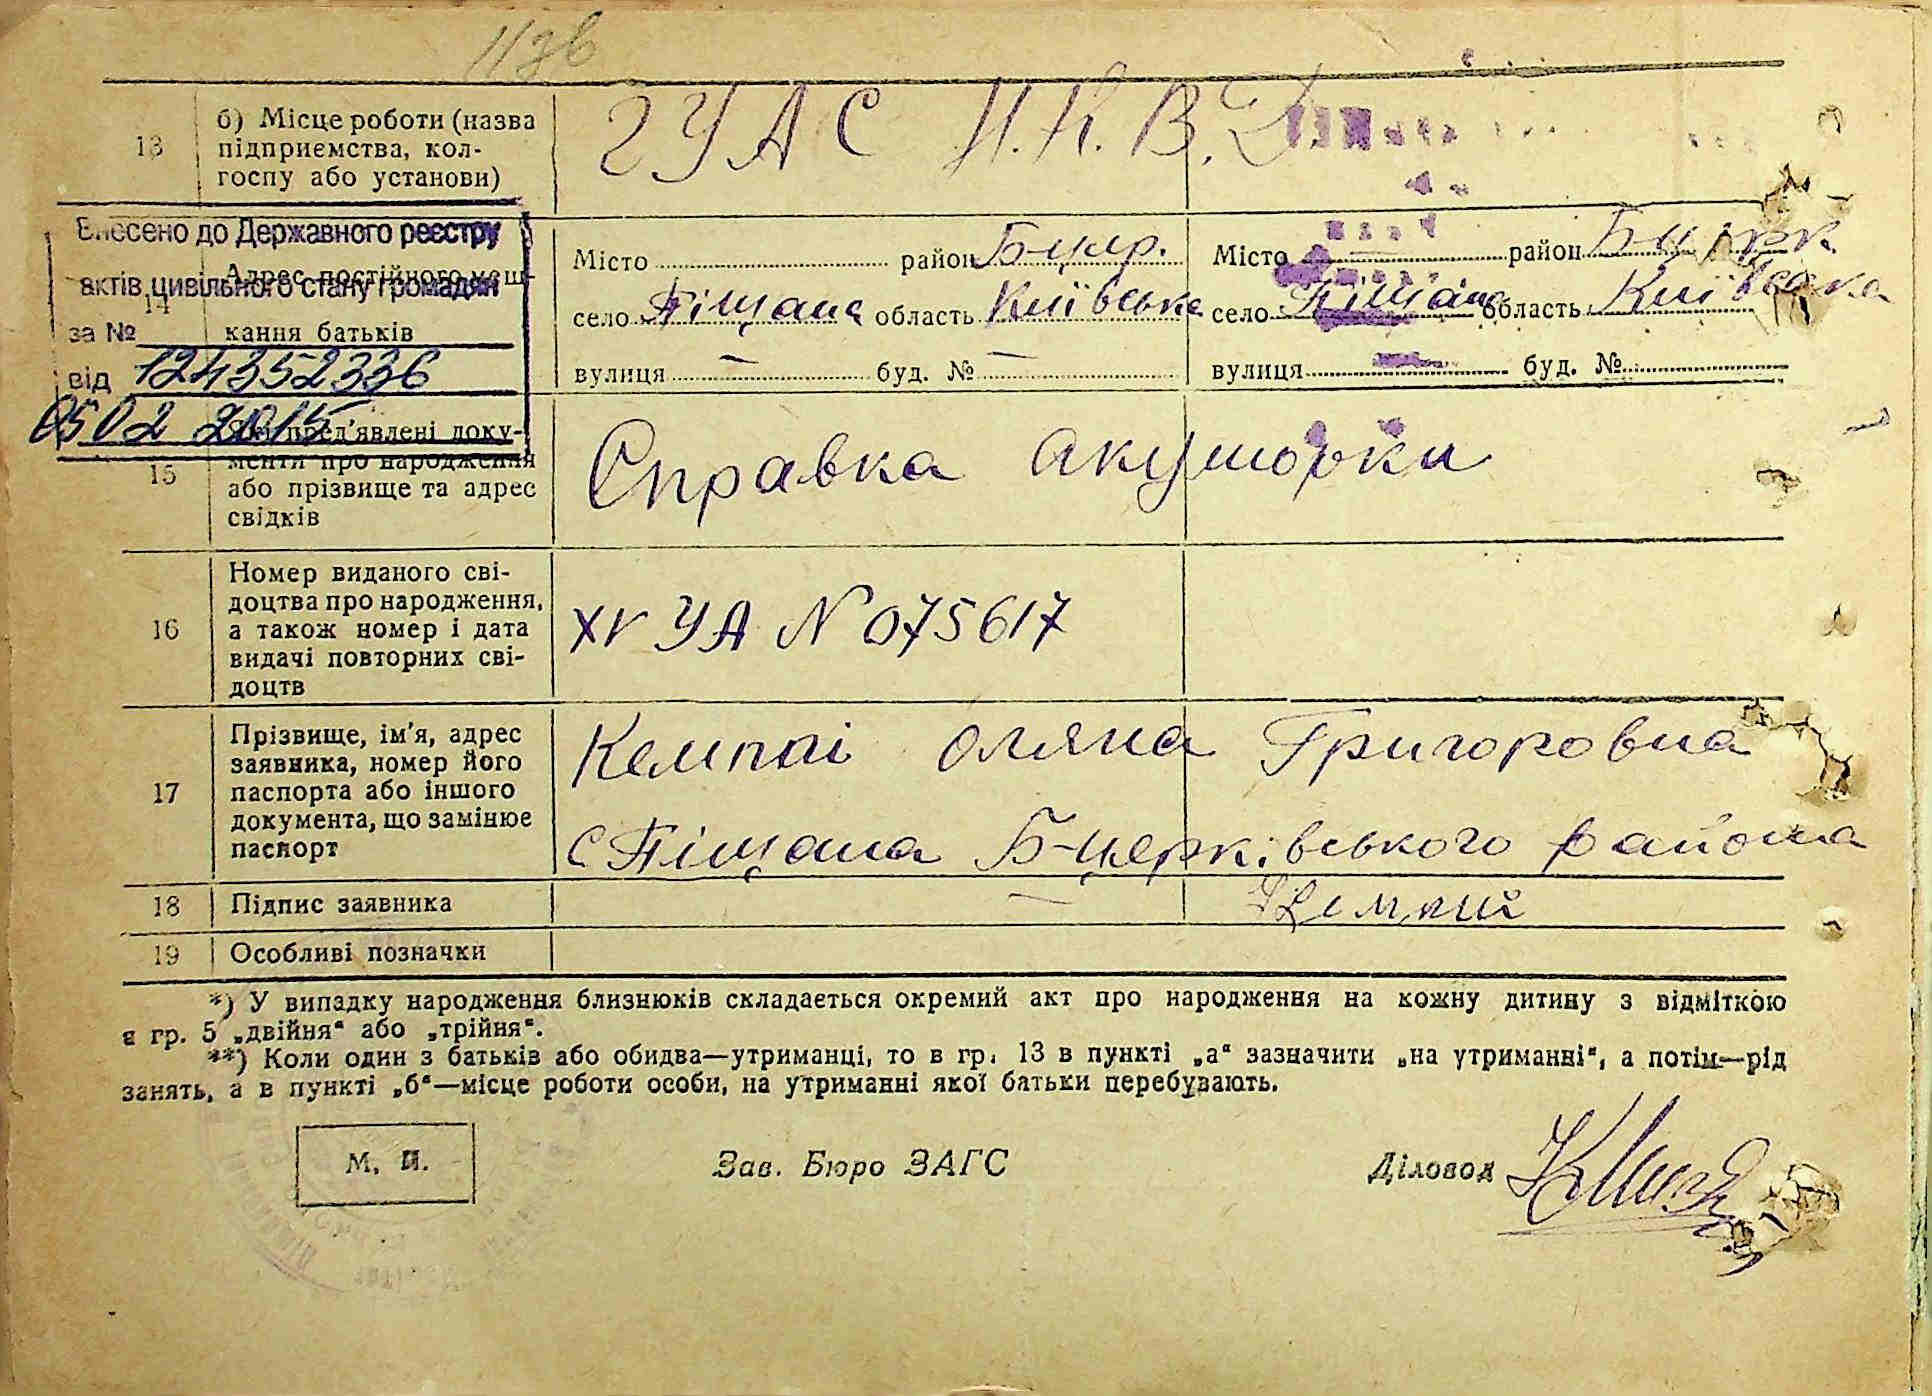 13
б) Місце роботи (назва
підприємства, кол-
госпу або установи)
ГУАС Н.К.В.Д.
Внесено до Державного реєстру
актів цивільного стану громадян
за №
від 124352336
05 02 2015
14
Адрес постійного меш-
кання батьків
Місто район Б-Цер.
село Піщана область Київська
вулиця — буд. № —
Місто — район
село Піщана область Київська
вулиця — буд. №
15
Які пред'явлені доку-
менти про народження
або прізвище та адрес
свідків
Справка акушорки
16
Номер виданого сві-
доцтва про народження,
а також номер і дата
видачі повторних сві-
доцтв
УА N 075617
17
Прізвище, ім'я, адрес
заявника, номер його
паспорта або іншого
документа, що замінює
паспорт
Оляна Григоровна
с Піщана Б-Церківського района
18
Підпис заявника
—
19
Особливі позначки
*) У випадку народження близнюків складається окремий акт про народження на кожну дитину з відміткою
в гр. 5 „двійня“ або „трійня“.
**) Коли один з батьків або обидва—утриманці, то в гр. 13 в пункті „а“ зазначити „на утриманні“, а потім—рід
занять, а в пункті „б“—місце роботи особи, на утриманні якої батьки перебувають.
М. П.
Зав. Бюро ЗАГС
Діловод